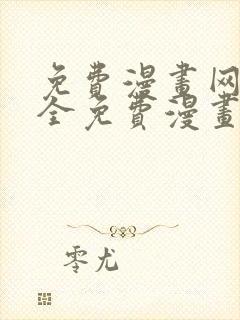 免費漫畫网
全免費漫畫
零尤